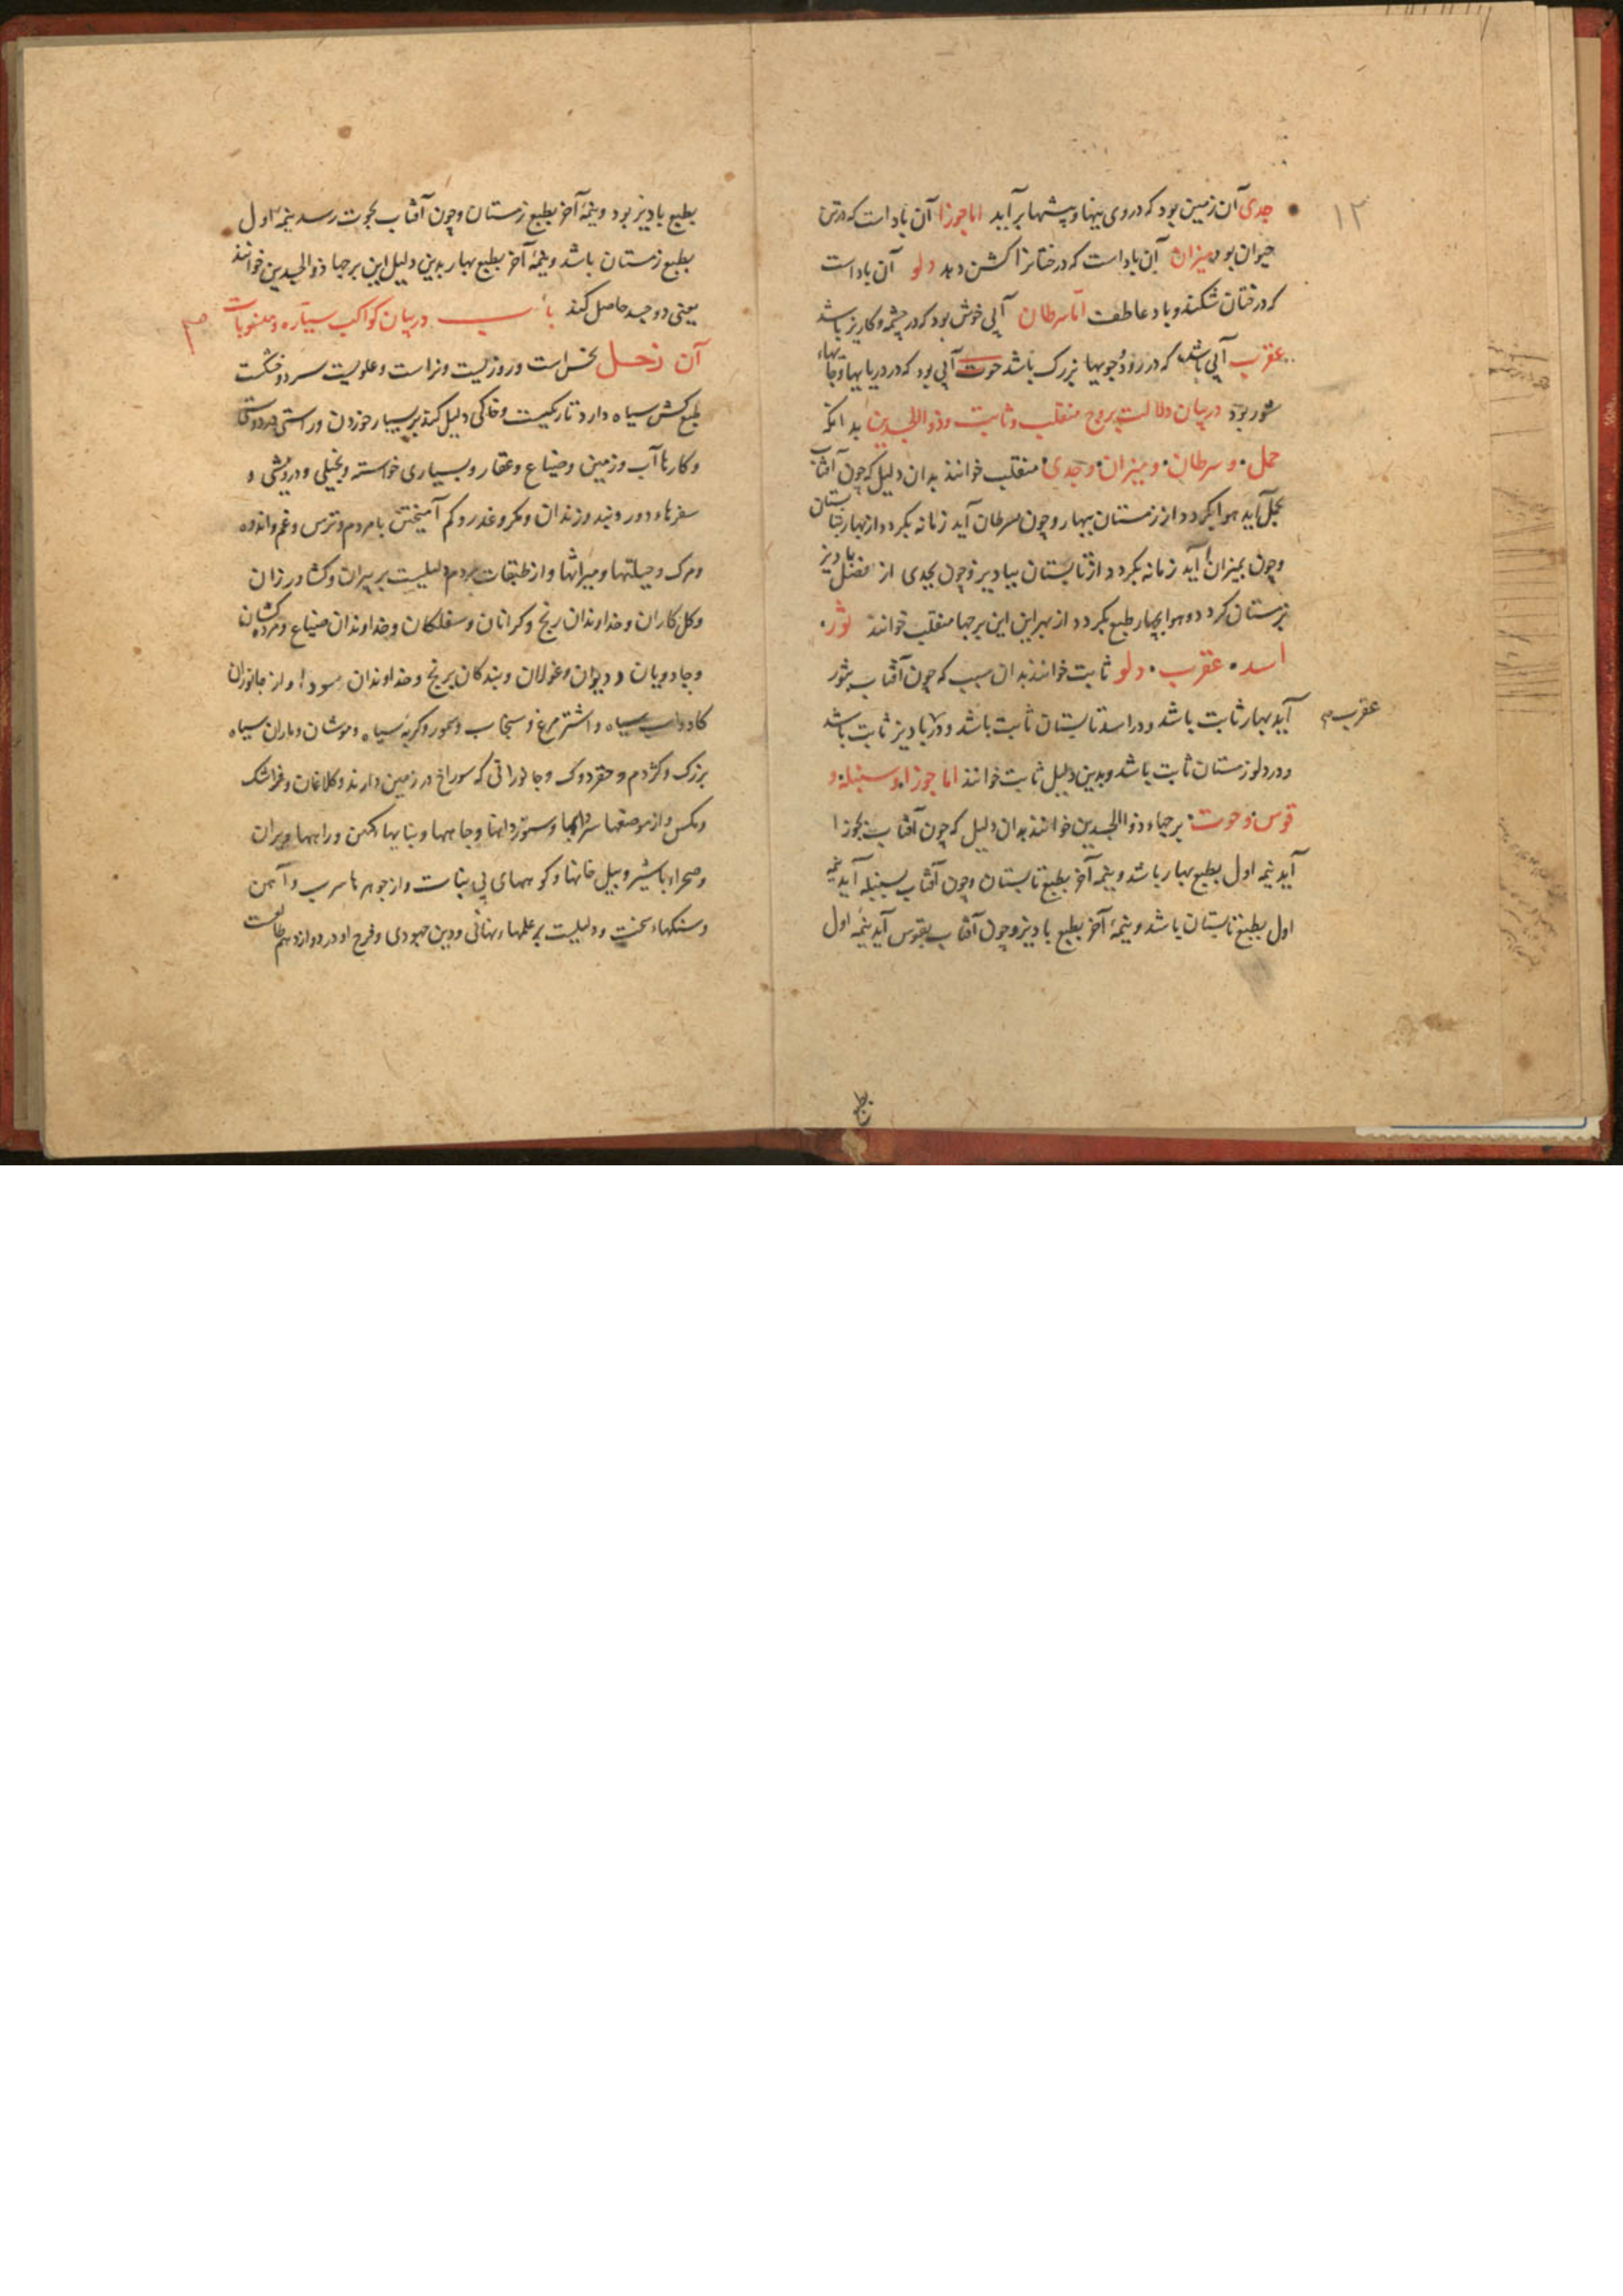 ۱۳
جدی آن زمین بود که در وی بیها و پشتها برآید اما جوزا آن باد است که در تن
حیوان بود میزان آن باد است که درختانرا کشن دهد دلو آن باد است
که درختان شکند و باد عاطفت اما سرطان آبی خوش بود که در چشمه و کاریز باشد
عقرب آبی باشد که در رود و جویها بزرک باشد حوت آبی بود که در دریا بها و جاهاء
شور بود در بیان دلالت بروج منقلب و ثابت و ذو الجسدین بدانکه
حمل و سرطان و میزان و جدی منقلب خوانند بدان دلیل که چون آفتاب
بحمل آید هوا بکردد از زمستان ببهار و چون بسرطان آید زمانه بکردد از بهار بتابستان
و چون بمیزان آید زمانه بکردد از تابستان بپادیز و چون بجدی از فصل پادیز
بزمستان کردد و هوا بچهار طبع بکردد از بهر این این برجها منقلب خوانند ثور
اسد عقرب دلو ثابت خوانند بدان سبب که چون آفتاب بثور
آید بهار ثابت باشد و در اسد تابستان ثابت باشد و در پادیز ثابت باشد
عقرب
و در دلو زمستان ثابت باشد و بدین دلیل ثابت خوانند اما جوزا و سنبله و
قوس و حوت برجهاء ذو الجسدین خوانند بدان دلیل که چون آفتاب بجوزا
آید نیمه اول بطبع بهار باشد و نیمه آخر بطبع تابستان و چون آفتاب بسنبله آید نیمه
اول بطبع تابستان باشد و نیمه آخر بطبع پادیز و چون آفتاب بقوس آید نیمه اول
بطبع
بطبع پادیز بود و نیمه آخر بطبع زمستان و چون آفتاب بحوت رسد نیمه اول
بطبع زمستان باشد و نیمه آخر بطبع بهار بدین دلیل این برجها ذو الجسدین خوانند
یعنی دو جسد حاصل کند باب در بیان کواکب سیاره و منسوبات
آن زحل نحس است و روزیست و نر است و علویست سرد و خشکست
طبع کش سیاه دارد تاریکیست و خاکی دلیل کند بر بسیار خوردن و راستی در دوستی
و کارها آب و زمین و ضیاع و عقار و بسیاری خواسته و بخیلی و درویشی و
سفرهاء دور و بند و زندان و مکر و غدر و کم آمیختن با مردم و ترس و غم و اندوه
و مرک و حیلتها و میراثها و از طبقات مردم دلیلیست بر پیران و کشاورزان
و کل کاران و خداوندان رنج و کرانان و سفلکان و خداوندان ضیاع و مرده کشان
و جادویان و دیوان و غولان و بندکان برنج و خداوندان سودا و از جانوران
کاو و اسب سیاه و اشتر مرغ و سنجاب و سمور و کربه سیاه و موشان و ماران سیاه
بزرک و کژدم و و جانورانی که سوراخ در زمین دارند و کلاغان و فراشتک
و مکس و از موضعها سردابها و ستوردانها و چاهها و بنایها کهن و راهها ویران
و صحراء با شیر و پیل خانها و کوههای بی نبات و از جوهرها سرب و آهن
و سنکهاء سخت و دلیلیست بر علمهاء نهانی و دین جهودی و فرح او در دوازدهم طالعست